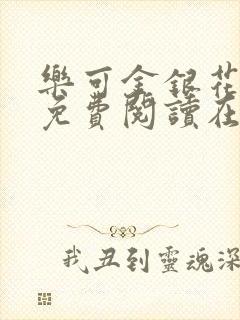 樂可金銀花
免費閱讀在
我丑到靈魂深